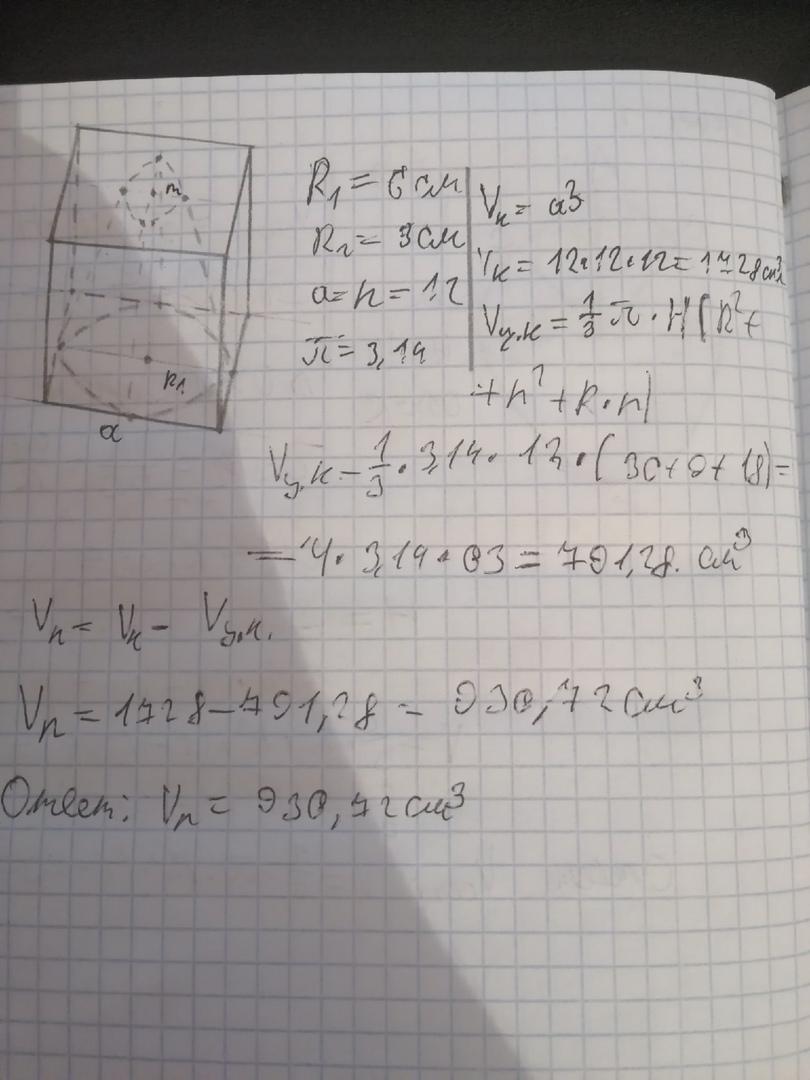 m
R₁
a
R₁ = 6 см
R₂ = 3 см
a = h = 12
π = 3,14
Vк = a³
Vк = 12·12·12 = 1728 см³
Vу.к = 1/3 π · H (R² +
+ r² + R·r)
Vу.к = 1/3 · 3,14 · 12 · (36 + 9 + 18) =
= 4 · 3,14 · 63 = 791,28 см³
Vп = Vк − Vу.к.
Vп = 1728 − 791,28 = 936,72 см³
Ответ: Vп = 936,72 см³